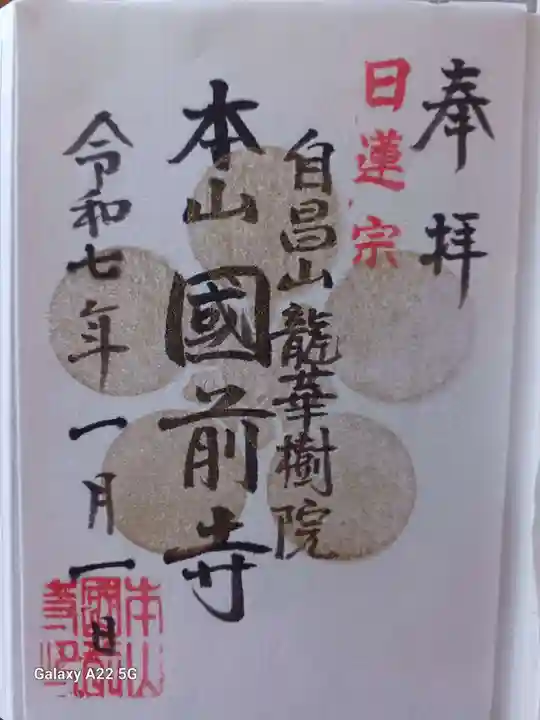 奉拝
日蓮宗
自昌山龍華樹院
本山國前寺
令和七年一月一日
本山
國前
寺印
Galaxy A22 5G